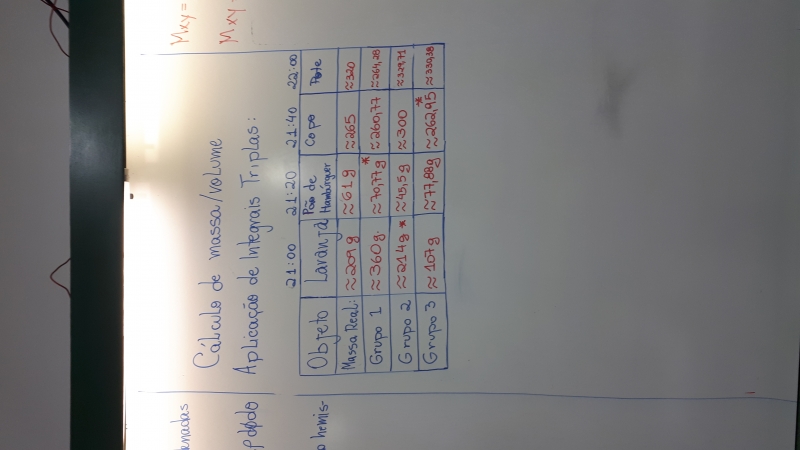 Cálculo de massa/volume
Aplicação de Integrais Triplas:
21:00 21:20 21:40 22:00
Objeto Laranja Pão de Hambúrguer Copo Pote
Massa Real: ≈209g ≈61g ≈265 ≈320
Grupo 1 ≈360g. ≈70,77g* ≈260,77 ≈264,28
Grupo 2 ≈214g* ≈45,5g ≈300 ≈329,71
Grupo 3 ≈107g ≈77,88g ≈262,95*
Mxy=
Mxy=
enadas
o hemis-